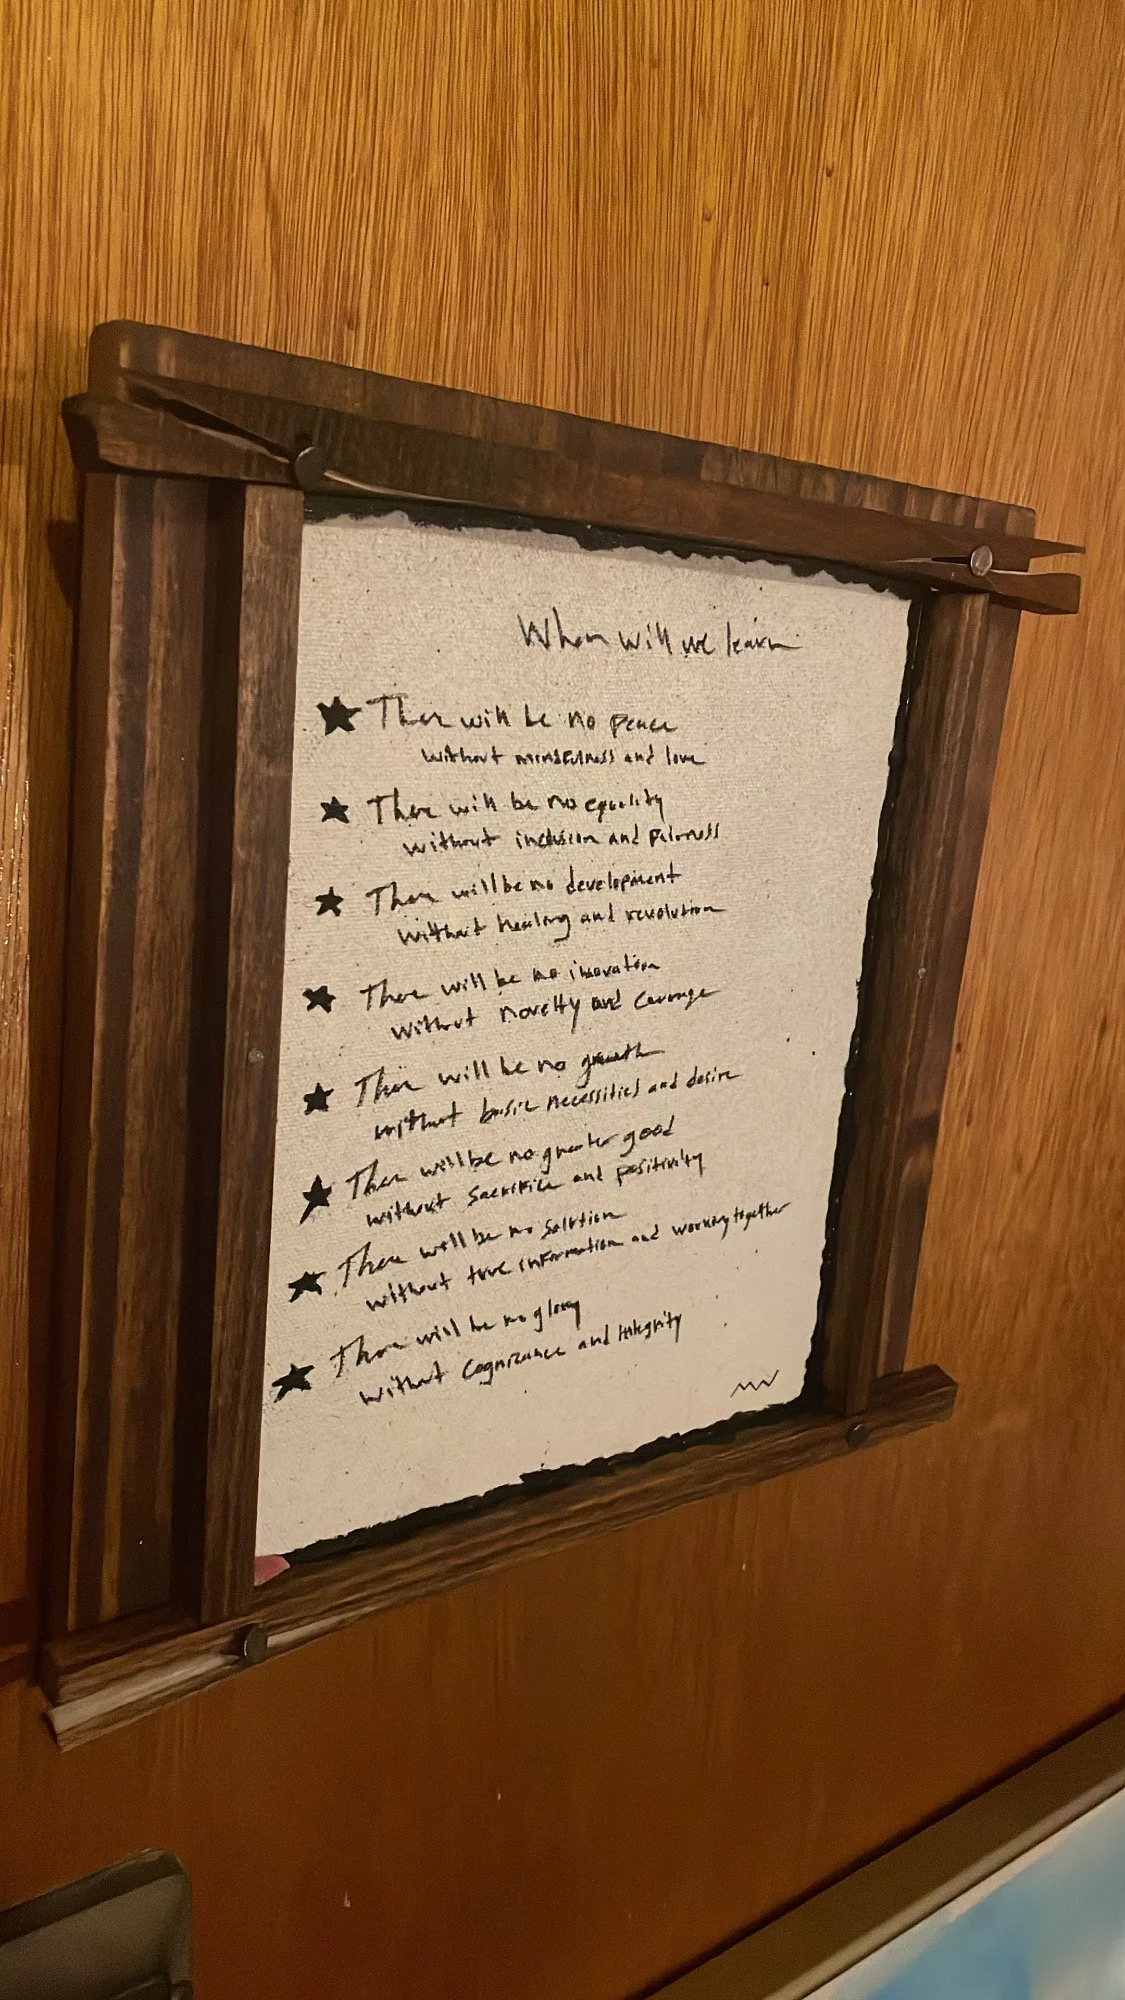 When will we learn
There will be no peace
without mindfulness and love
There will be no equality
without inclusion and fairness
There will be no development
without healing and revolution
There will be no innovation
without novelty and courage
There will be no growth
without basic necessities and desire
There will be no greater good
without sacrifice and positivity
There will be no solution
without true information and working together
There will be no glory
without cognizance and integrity